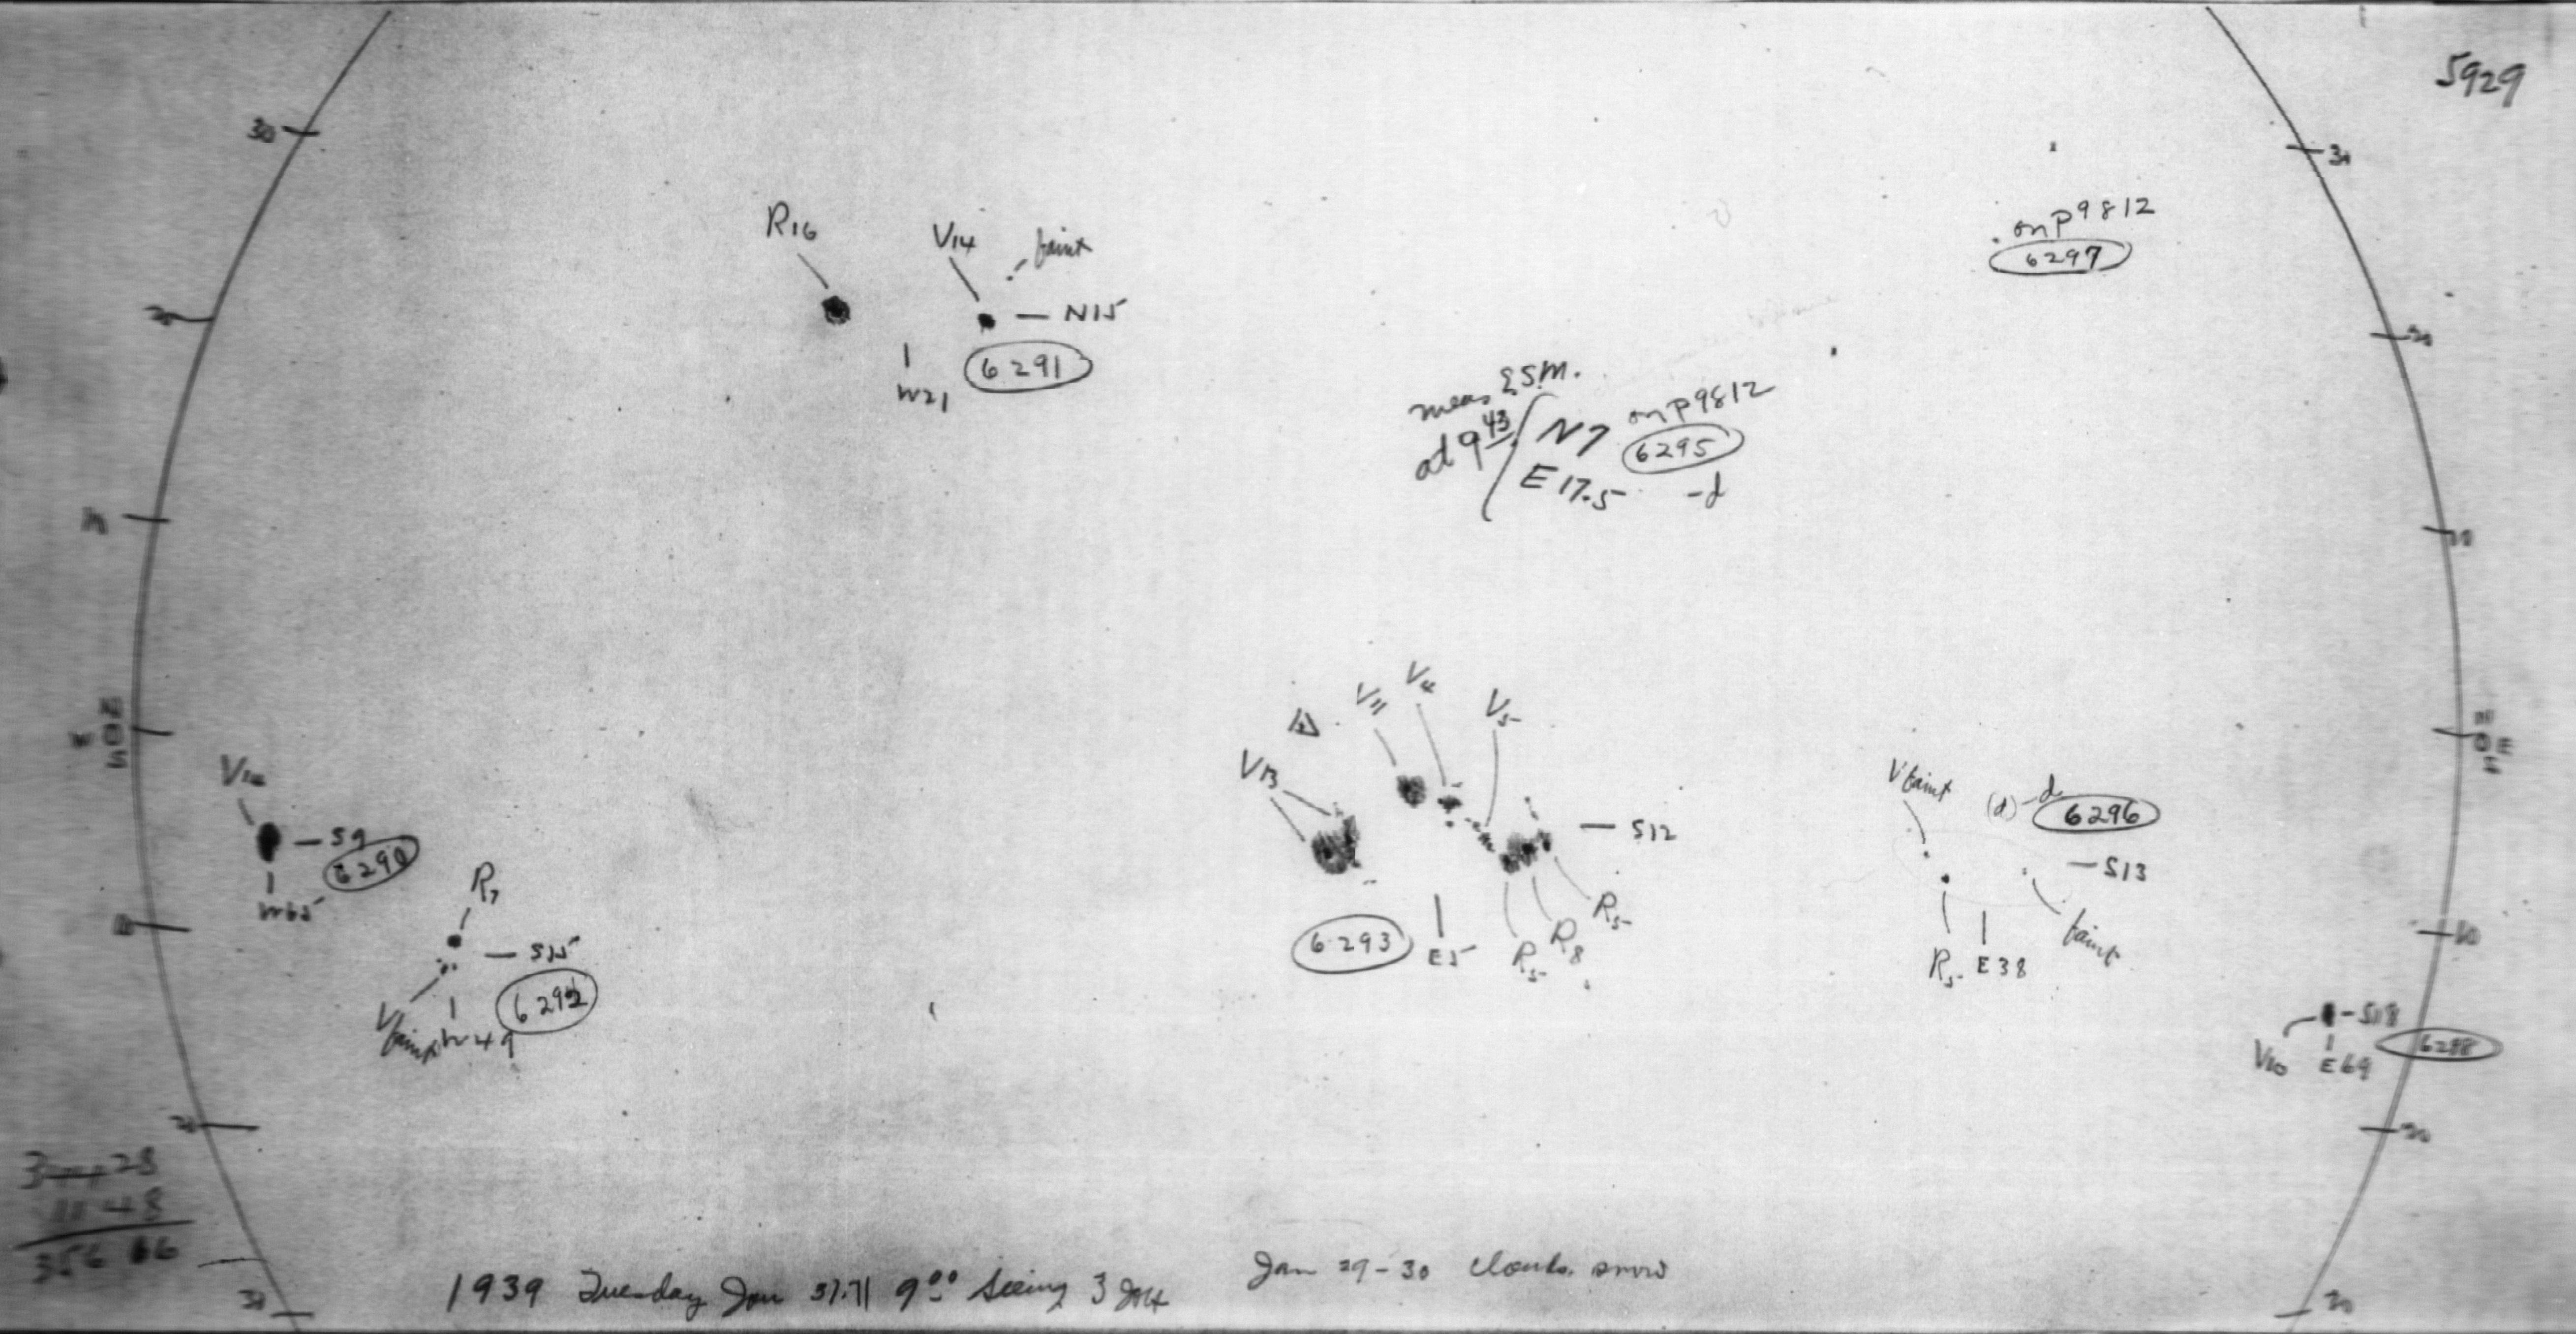 5929
30
30
R16
V14
faint
N15
6291
W21
on P9812
6297
20
20
meas E.S.M.
at 9 43
N7
E 17.5
on P9812
6295
-d
10
N
O
S
W
N
O E
S
V11
V4
V5
V13
S12
6293
E5
R5
R8
R5
V faint
(d) -d
6296
S13
R5
E38
faint
S9
6290
W65
R7
S15
6292
V faint
W49
10
S18
V10
E69
6288
20
20
28
11 48
356 16
30
30
1939 Tuesday Jan 31.71 9 00 Seeing 3
Jan 29-30 clouds. snow